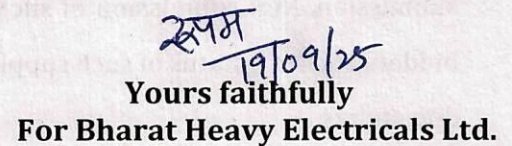 रूपम
19/09/25
Yours faithfully
For Bharat Heavy Electricals Ltd.